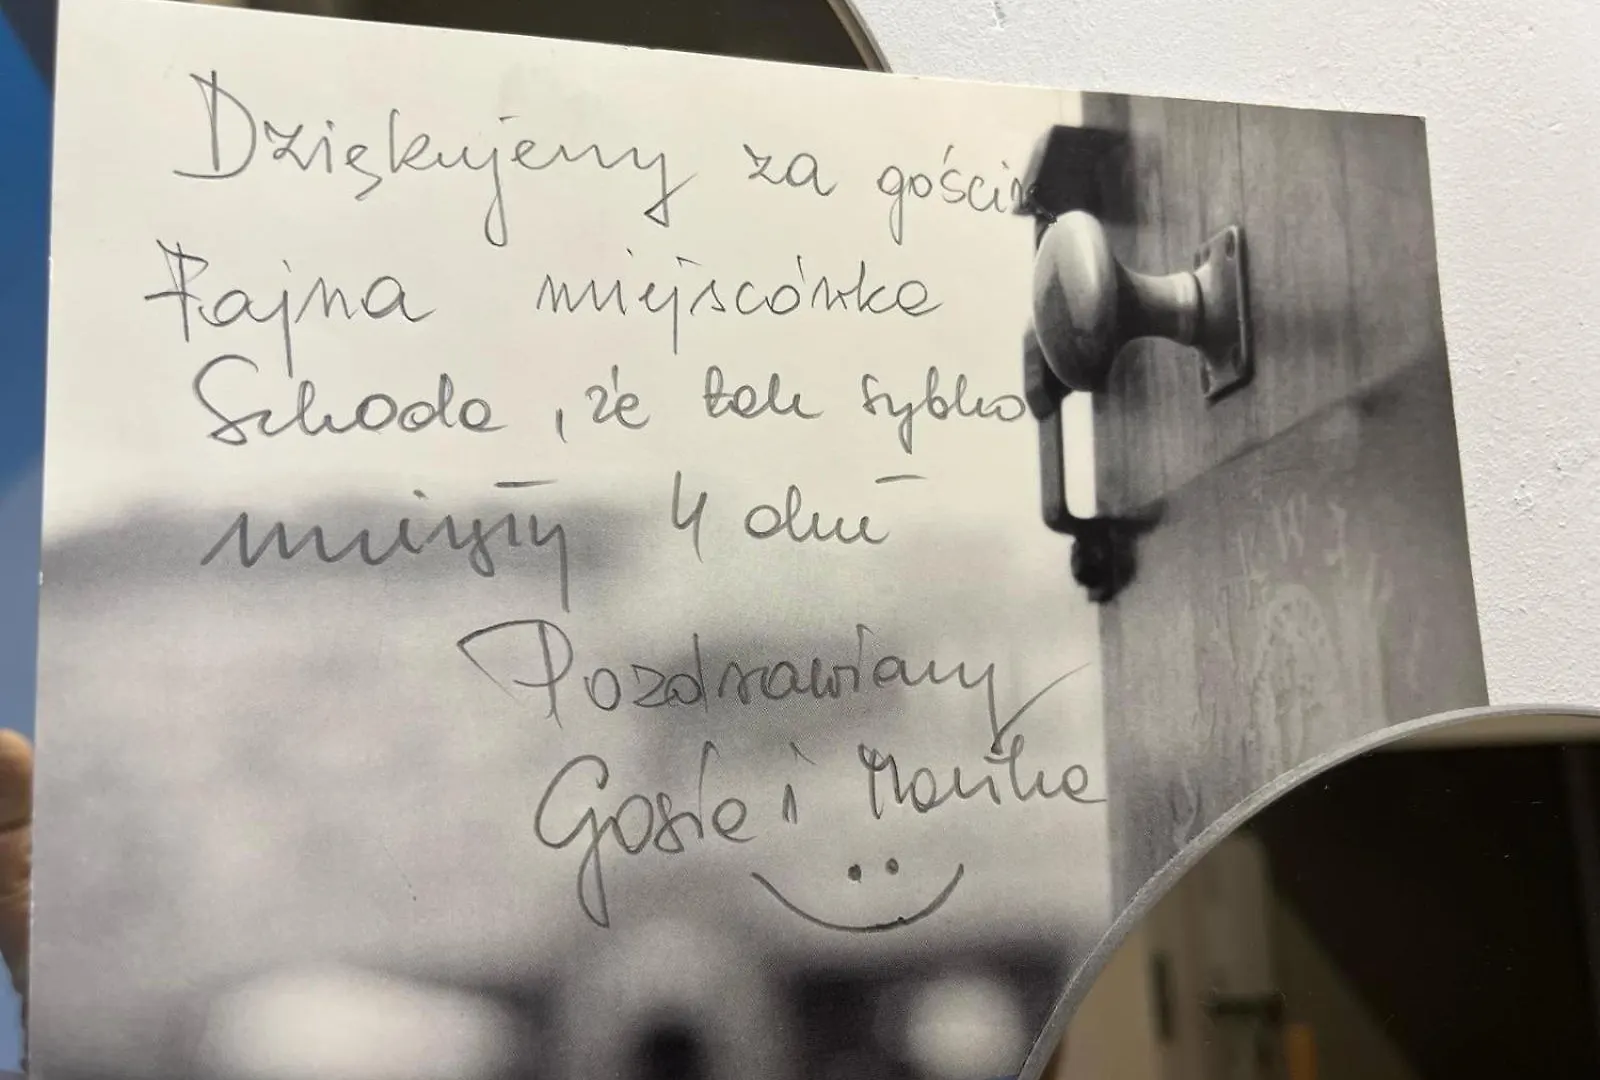 Dziękujemy za gościn
Fajna miejscówka
Szkoda, że tak szybko
minęły 4 dni
Pozdrawiamy
Gosia i Marika